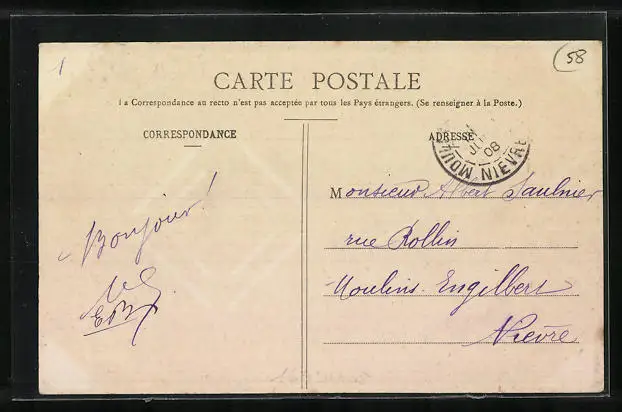 1
58
CARTE POSTALE
La Correspondance au recto n'est pas acceptée par tous les Pays étrangers. (Se renseigner à la Poste.)
CORRESPONDANCE
ADRESSE
08
NIEVRE
Bonjour!
Monsieur Albert Saulnier
rue Rollin
Moulins-Engilbert
Nièvre